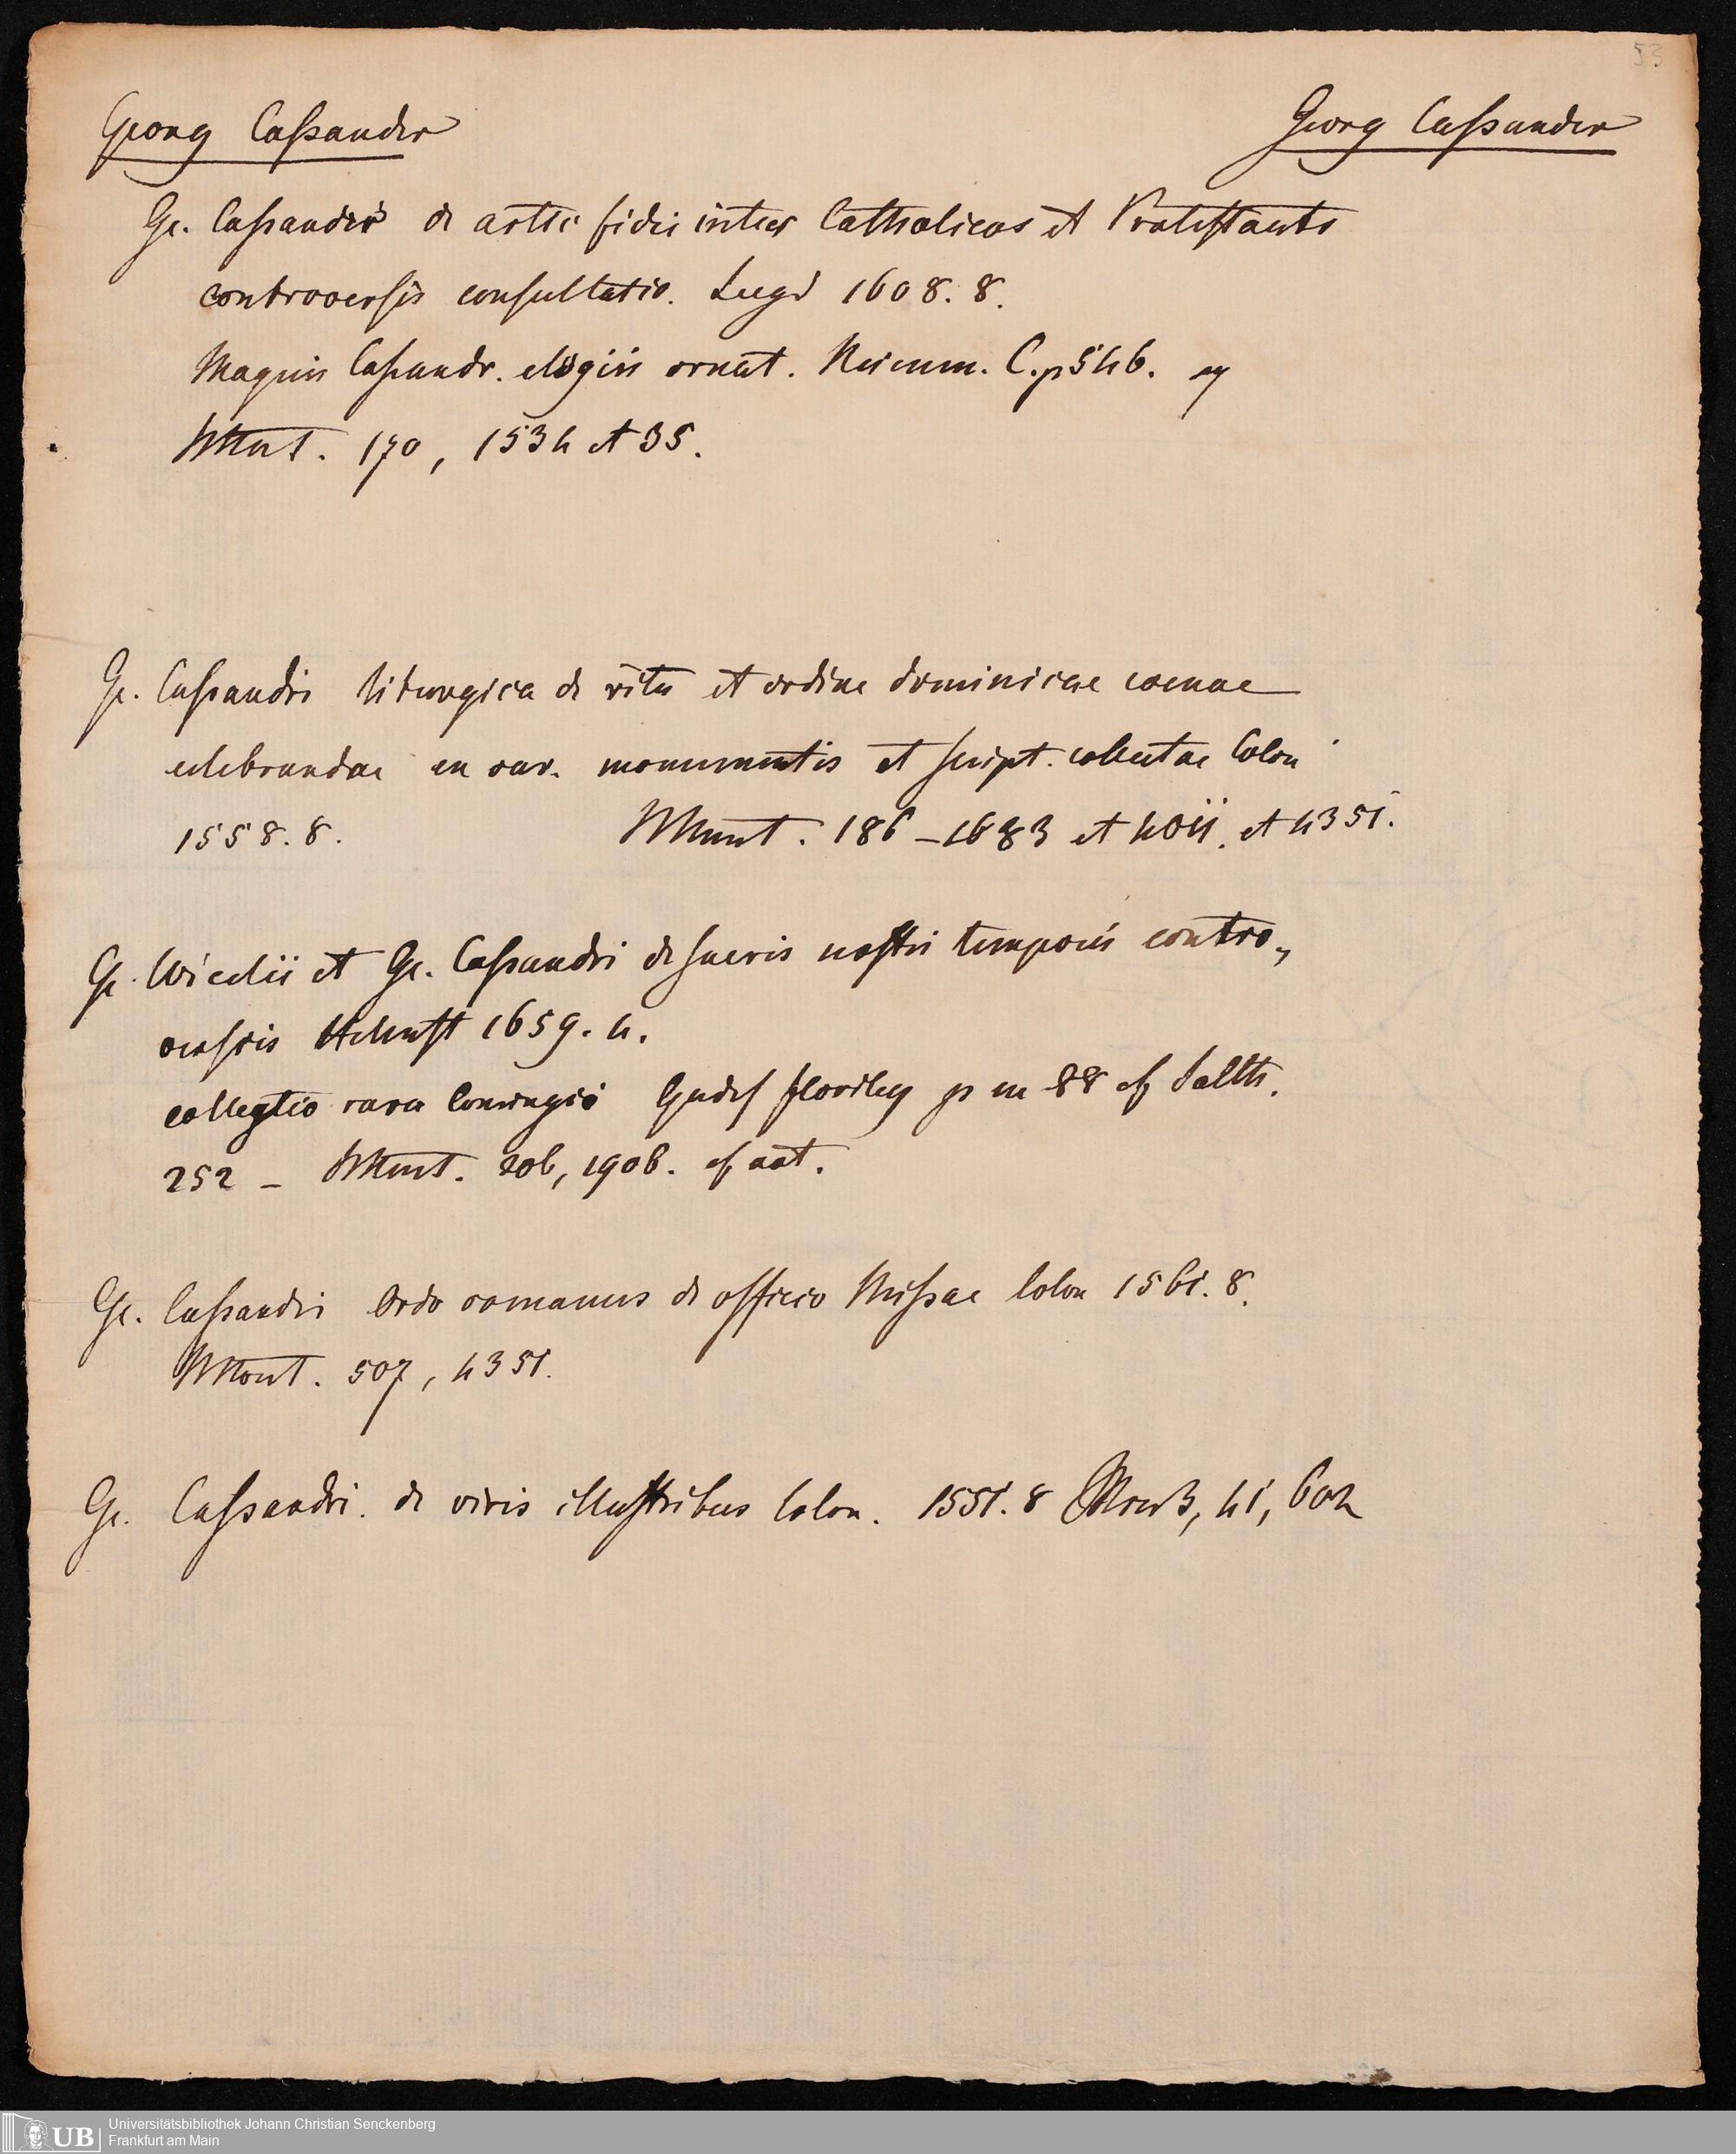 53
Georg Caſsander Georg Caſsander
Ge. Caſsander de artic fidei inter Catholicos et Proteſtantes
controverſis conſultatio. Lugd 1608. 8.
Magnis Caſsandr. elogiis ornat. Reimm. C. p 546.
170, 1534 et 35.
Ge. Caſsandri Liturgica de ritu et ordine dominicae coenae
celebrandae ex var. monumentis et ſcript. collectae Colon
1558. 8. 186 – 1683 et 4011. et 4351.
Ge. Wicelii et Ge. Caſsandri de ſacris noſtri temporis contro„
verſiis Helmſt 1659. 4.
collectio rara Conringio Gudeſ florileg p m 88 cf Salth.
252 – 206, 1906. cf aut.
Ge. Caſsandri Ordo romanus de officio Miſsae Colon 1561. 8.
507, 4351.
Ge. Caſsandri. de viris illuſtribus Colon. 1551. 8 41, 604
UB Universitätsbibliothek Johann Christian Senckenberg
Frankfurt am Main